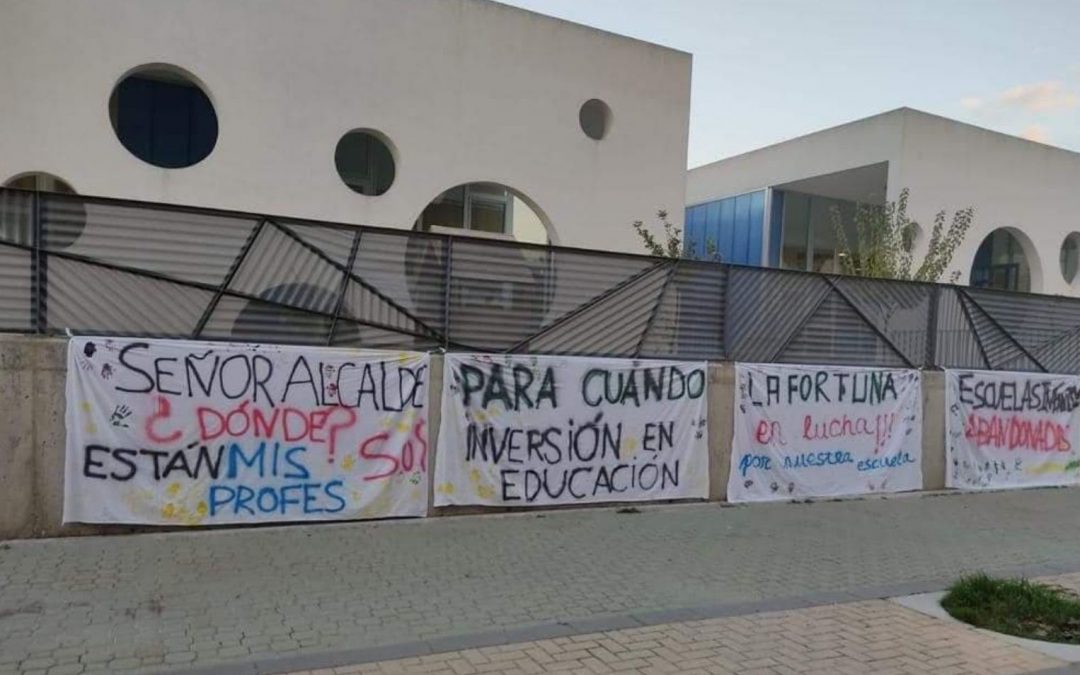 SEÑOR ALCALDE
¿DÓNDE?
ESTÁN MIS
PROFES
SOS
PARA CUÁNDO
INVERSIÓN EN
EDUCACIÓN
LA FORTUNA
en lucha!!!
por nuestra escuela
ESCUELAS
ABANDONADAS